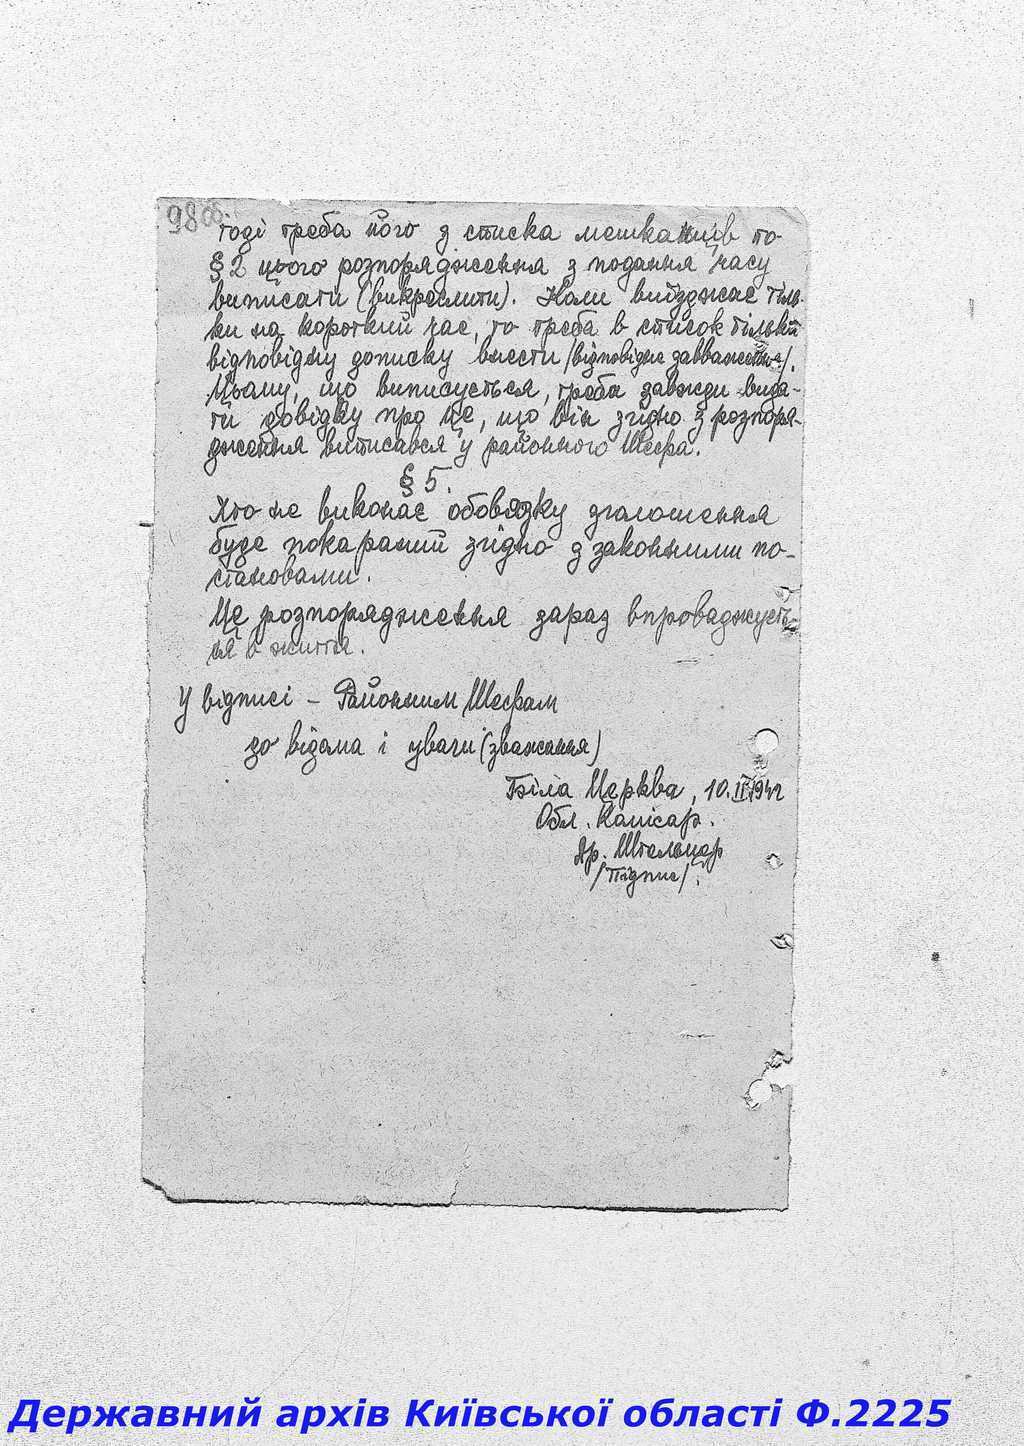 98 об.
тоді треба його з списка мешканців по
§ 2 цього розпорядження з подання часу
виписати (викреслити). Коли виїзджає тіль-
ки на короткий час, то треба в список тільки
відповідну дописку внести /відповідне завваження/.
Цьому, що виписується, треба завжди вида-
ти довідку про це, що він згідно з розпоря-
дження виписався у районного Шефа.
§ 5.
Хто не виконає обовязку зголошення
буде покараний згідно з законними по-
становами.
Це розпорядження зараз впроваджуєть-
ся в життя.
У відписі – Районним Шефам
до відома і уваги (зваження)
Біла Церква, 10.II.1942
Обл. Комісар.
Др. Штельцер
/Підпис/.
Державний архів Київської області Ф.2225